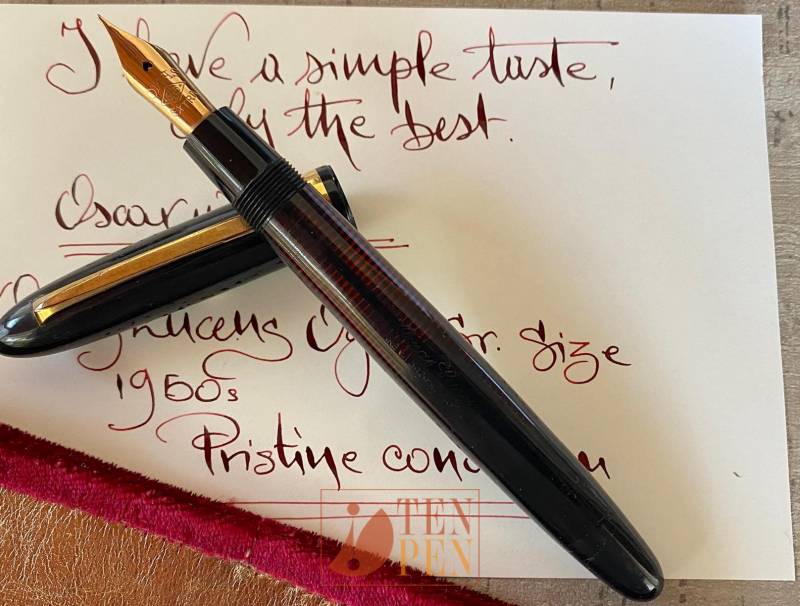 I have a simple taste,
only the best.
Oscar
Lucens Size
1950s
Pristine condition
TEN
PEN